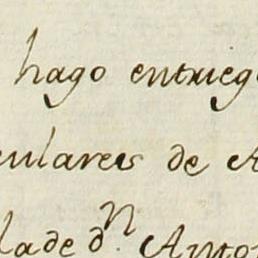 hago entrieg
culares de A
la de dⁿ. Anto